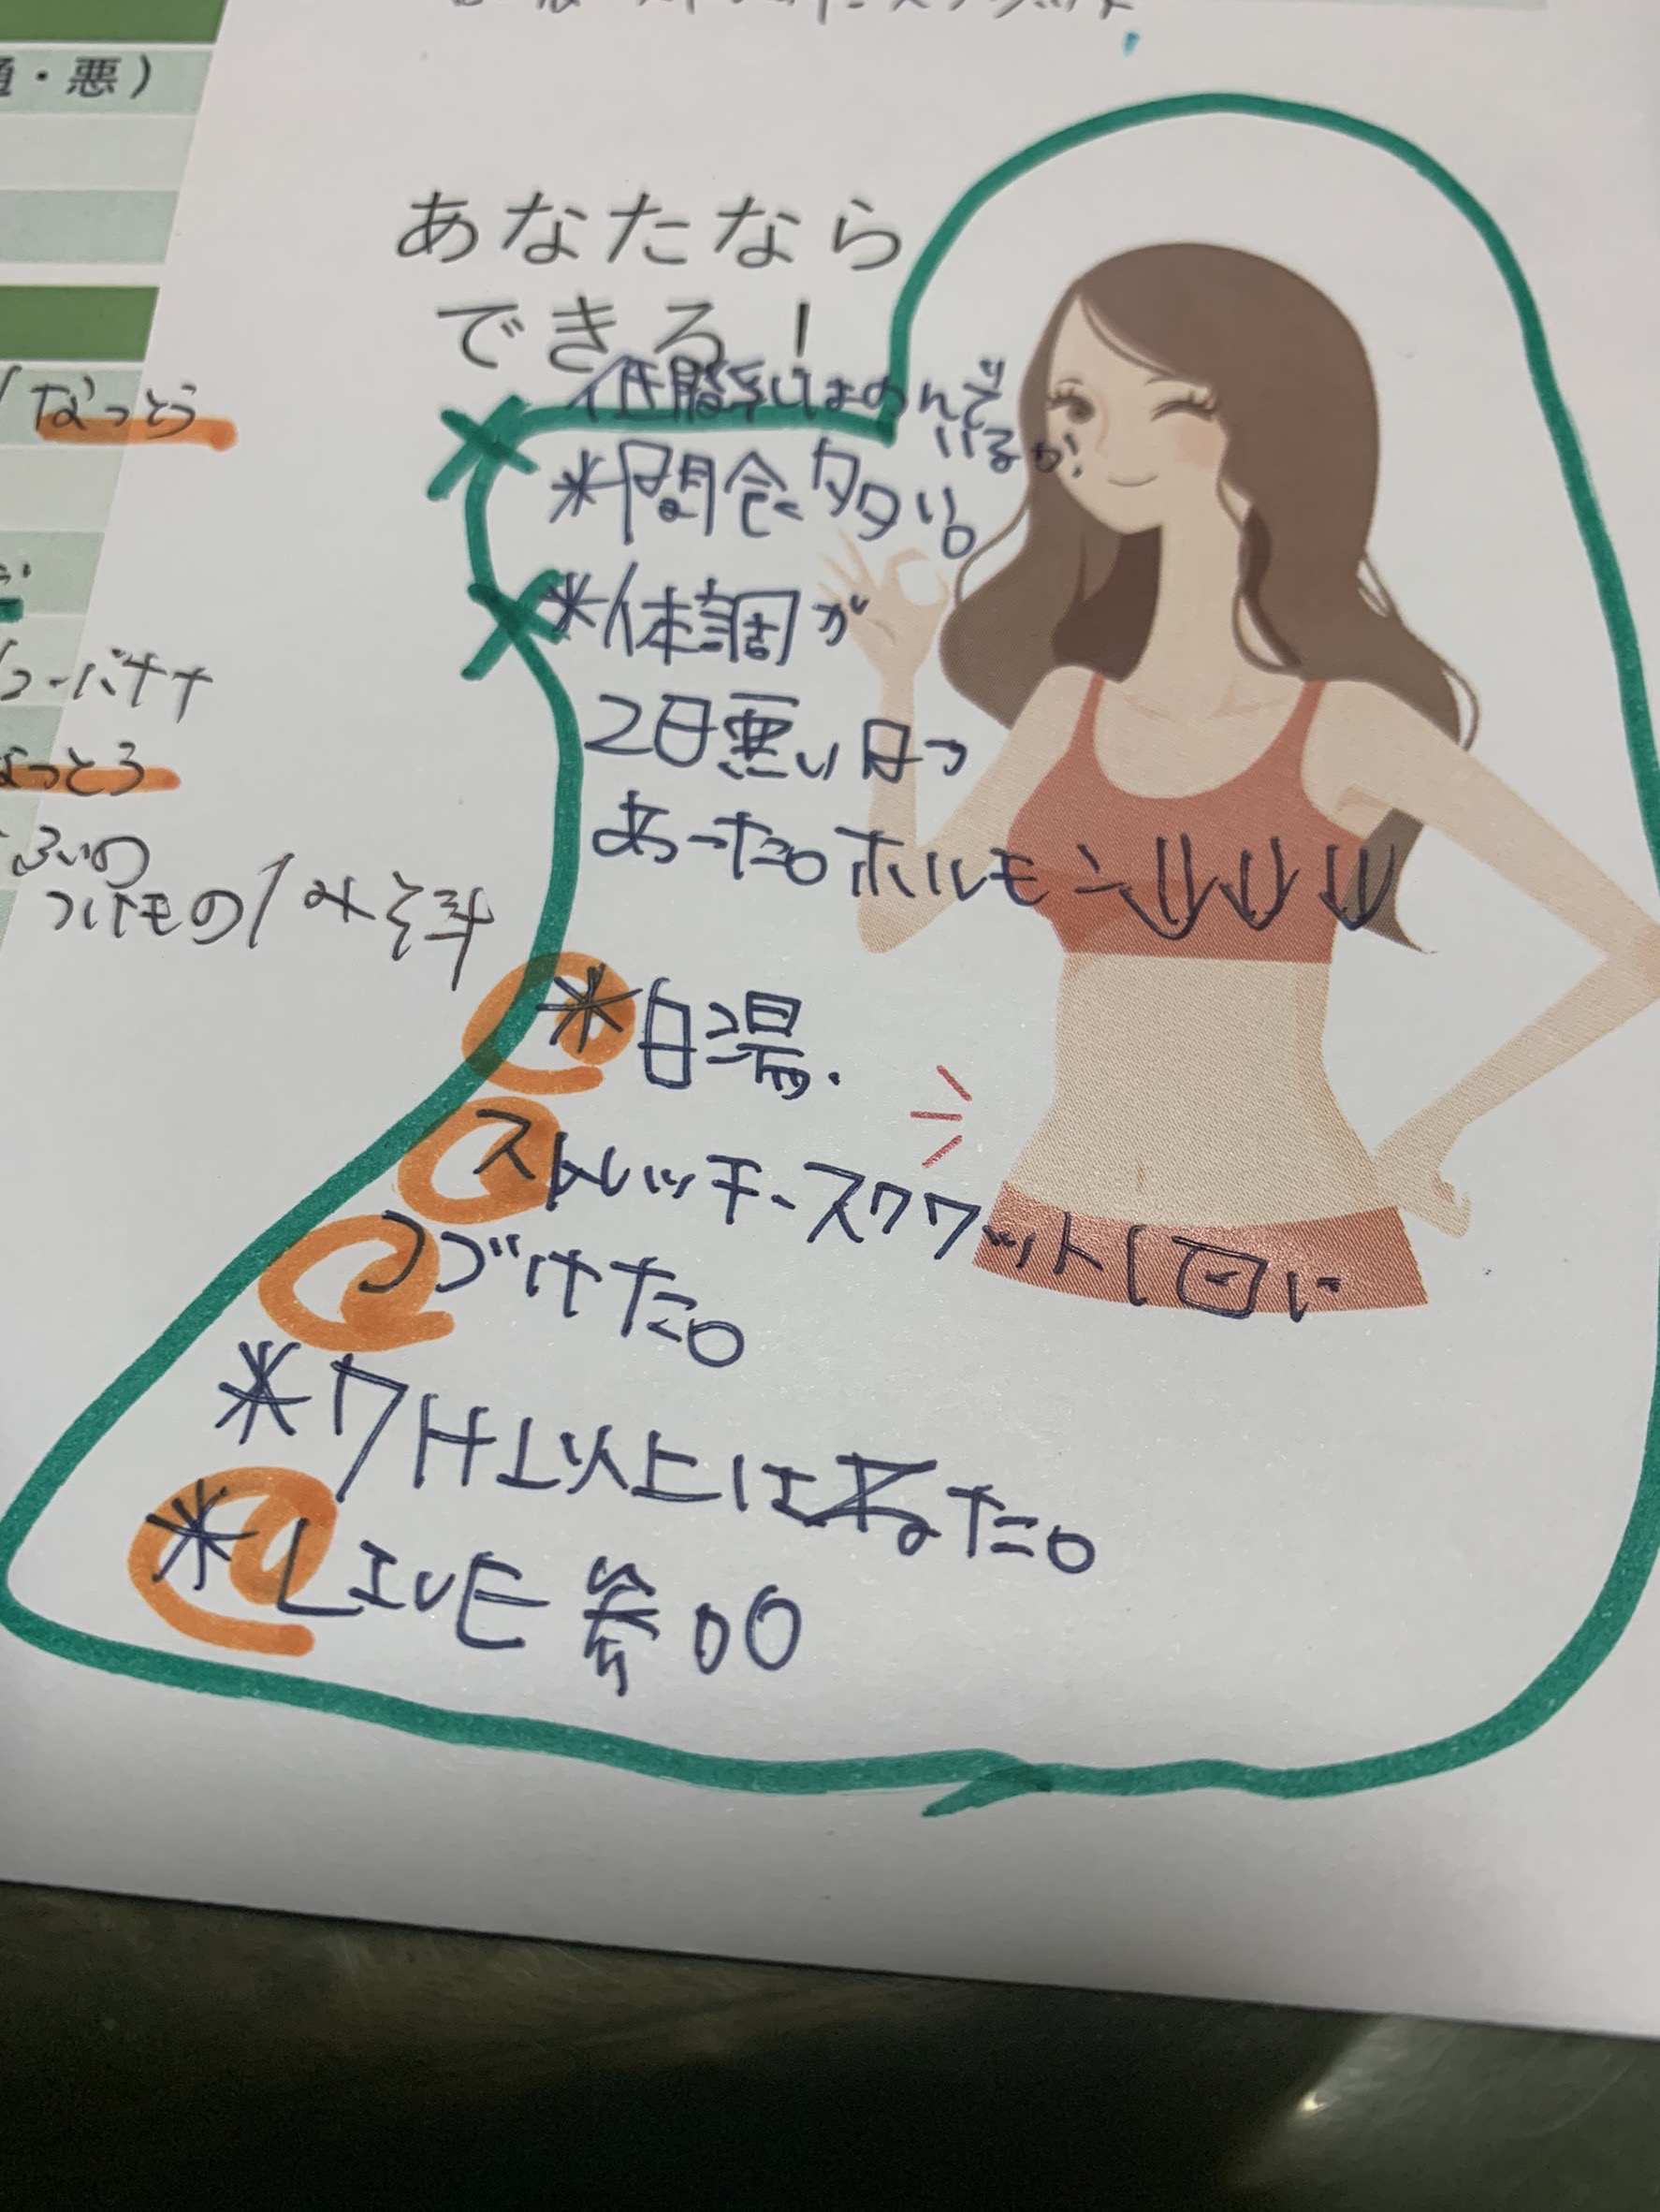 ・悪）
あなたなら
できる！
なっとう
低脂乳はのんで
いるが!
*間食多い。
*体調が
2日悪い日っ
あった。ホルモン↓↓↓
バナナ
なっとう
つけもの/みそ汁
*白湯.
ストレッチースクワット1回に
つづけた。
*7H以上はねた。
*LIVE参加